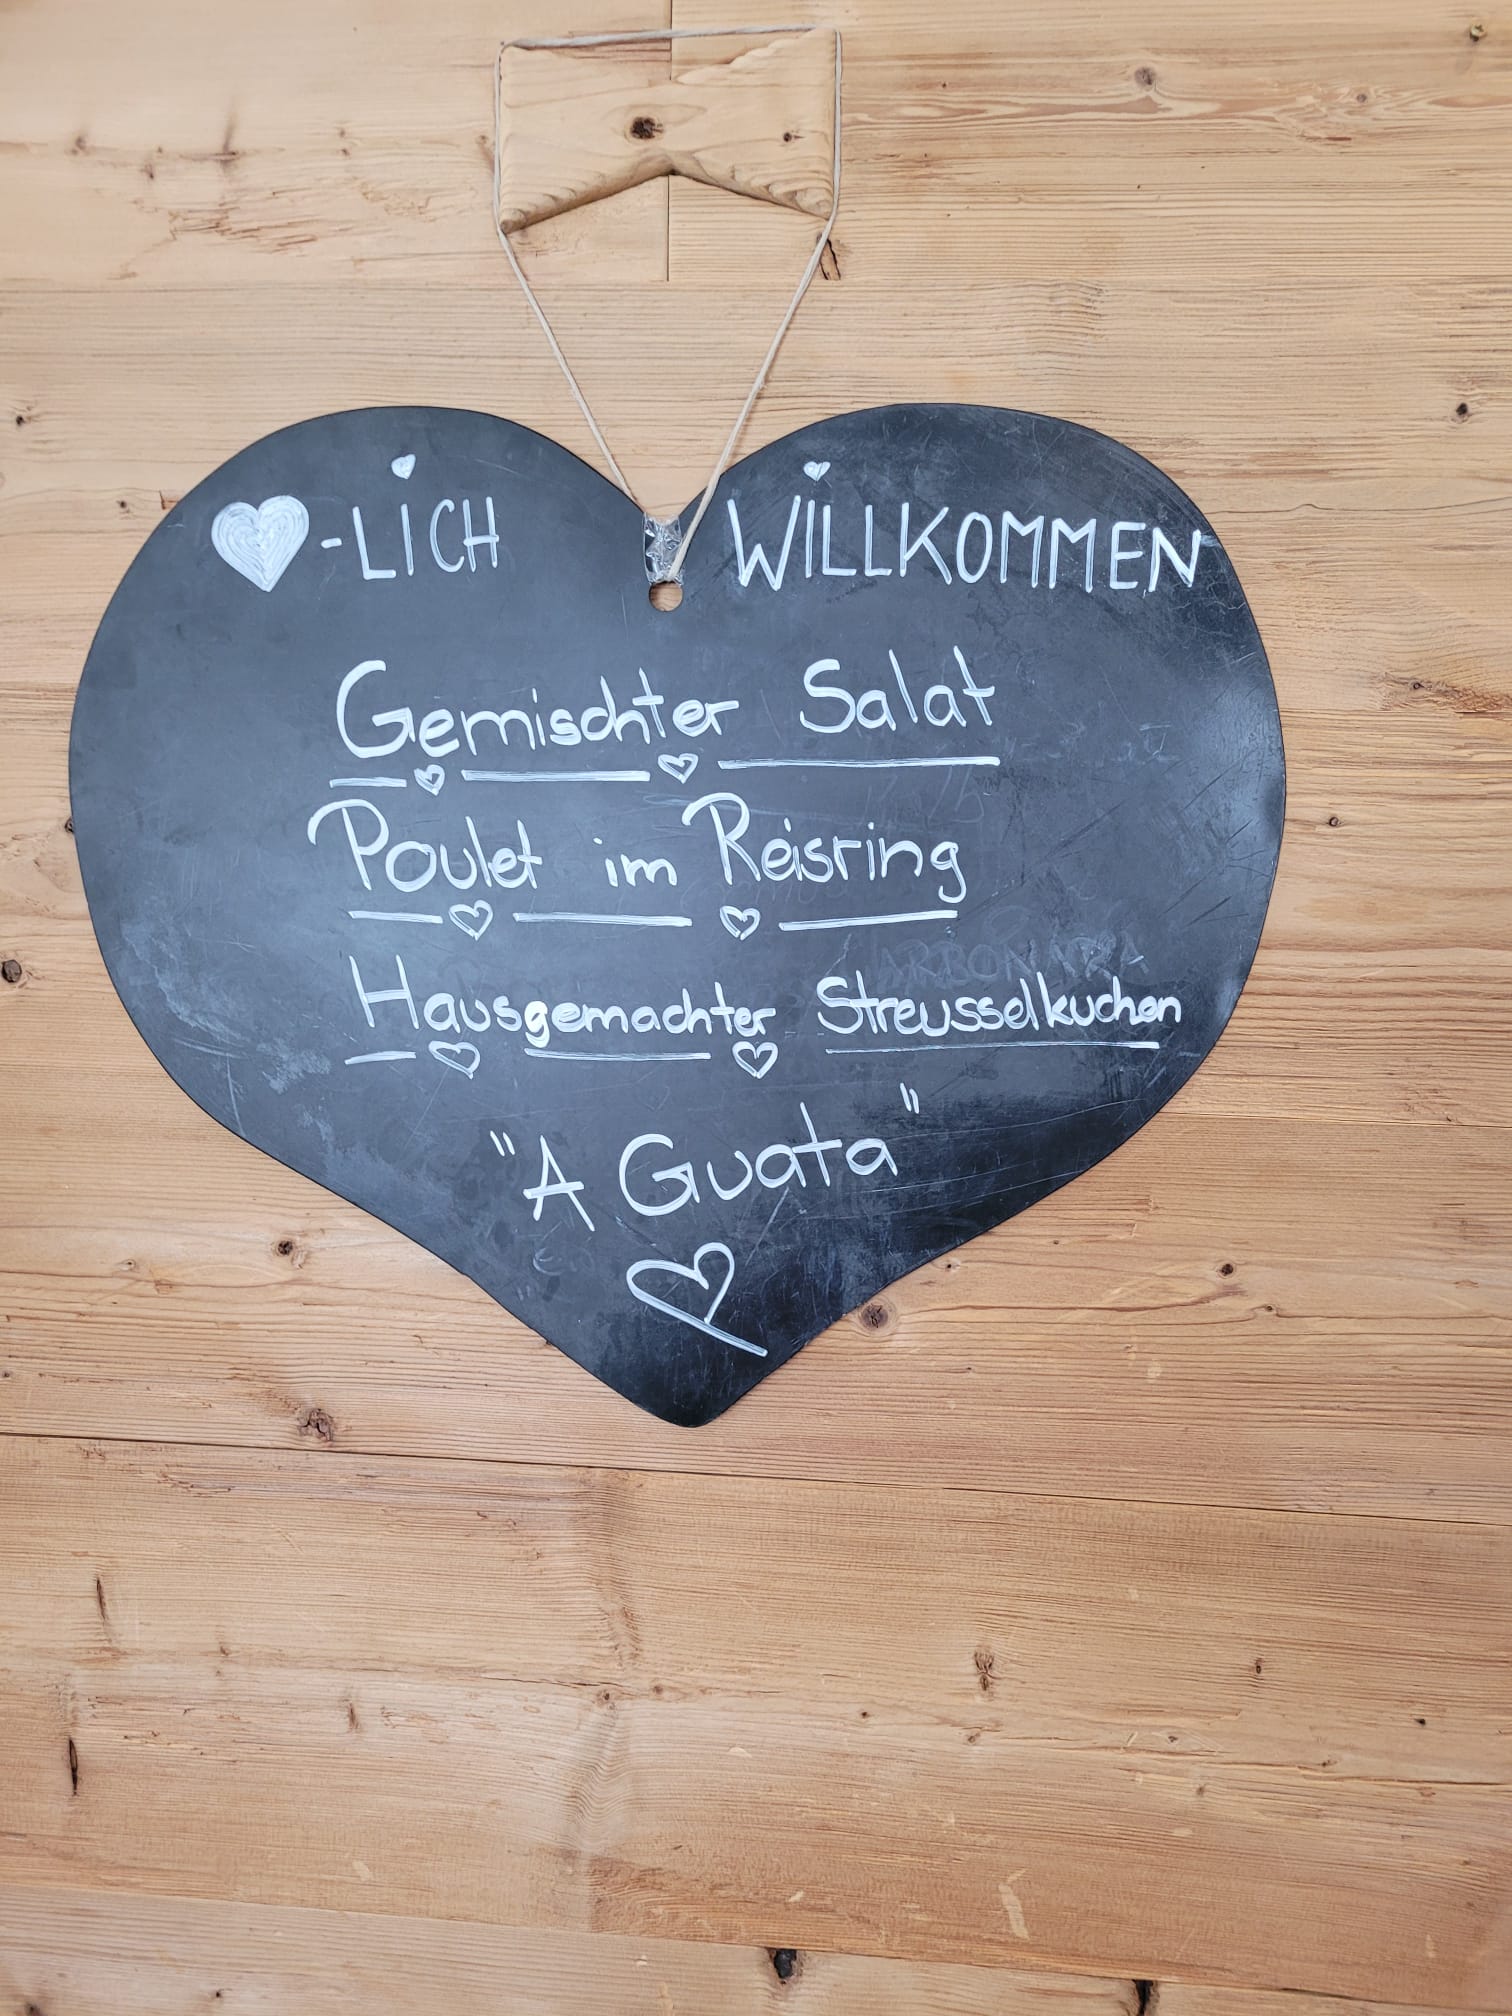 ♥-LICH WILLKOMMEN
Gemischter Salat
Poulet im Reisring
Hausgemachter Streusselkuchen
"A Guata"